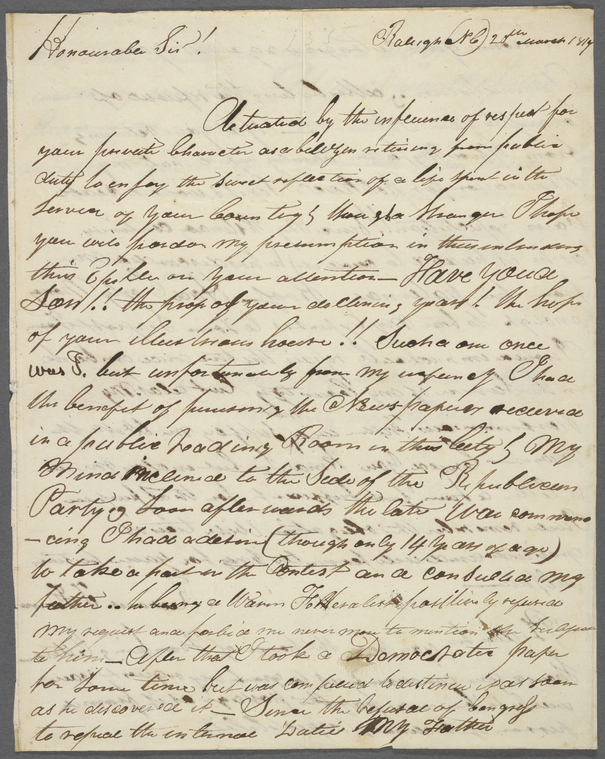 Honourable Sir!
Raleigh (NC) 2 th March 1817
Actuated by the influence of respect for
your private Character as a being retiring from public
duty to enjoy the sweet reflection of a life spent in the
Service of your Country, though a Stranger I hope
you will pardon my presumption in thus intruding
this Epistle on your attention — Have you a
Son!! the prop of your declining years! the hope
of your illustrious house!! Such a one once
was I. but unfortunately from my infancy I had
the benefit of perusing the News papers received
in a public Reading Room in this City, My
Mind inclined to the Side of the Republican
Party & soon afterwards the late War commen
-cing I had a desire (though only 14 Years of age)
to take a part in the Contest and consulted my
father.. he being a Warm Federalist positively refused
my request and forbid me never more to mention the subject
to him — After that I took a Democratic paper
for some time but was compelled to distance as soon
as he discovered it — Since the refusal of Congress
to repeal the internal Duties My Father